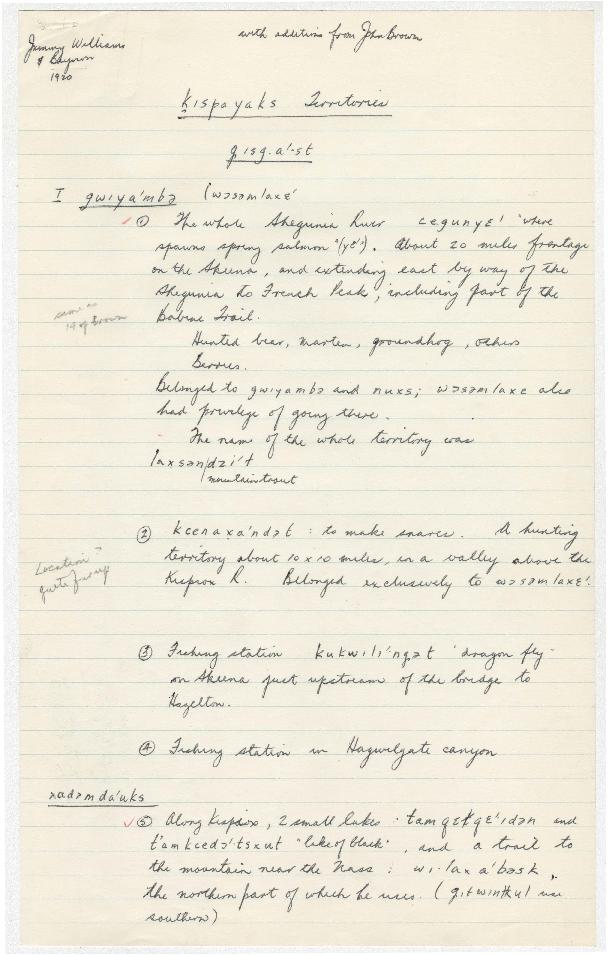 with additions from John Brown
Jimmy Williams
& Beynon
1920
kispayaks Territories
gisg.a'st
I gwiya'mbə (wəsəmlaxɛ'
① The whole Shegunia River cegunyɛ' "where
spawns spring salmon" (yɛ'). About 20 miles frontage
on the Skeena, and extending east by way of the
Shegunia to French Peak, including part of the
Babine Trail.
Hunted bear, marten, groundhog, others
Berries.
Belonged to gwiyambə and nuxs; wəsəmlaxɛ also
had privilege of going there.
The name of the whole territory was
laxsən/dzi't
mountain trout
same as
19 of Brown
② kcenaxa'ndət : to make snares. A hunting
territory about 10 x 10 miles, in a valley above the
Kispiox R. Belonged exclusively to wəsəmlaxɛ'.
Location?
quite far up
③ Fishing station kukwili'ngət 'dragon fly'
on Skeena just upstream of the bridge to
Hazelton.
④ Fishing station in Hagwilgate canyon
xadəmda'uks
⑤ Along Kispiox, 2 small lakes : and
"lake of black", and a trail to
the mountain near the Nass : wi·lax a'bəsk,
the northern part of which he uses. (gitwinłkul use
southern)